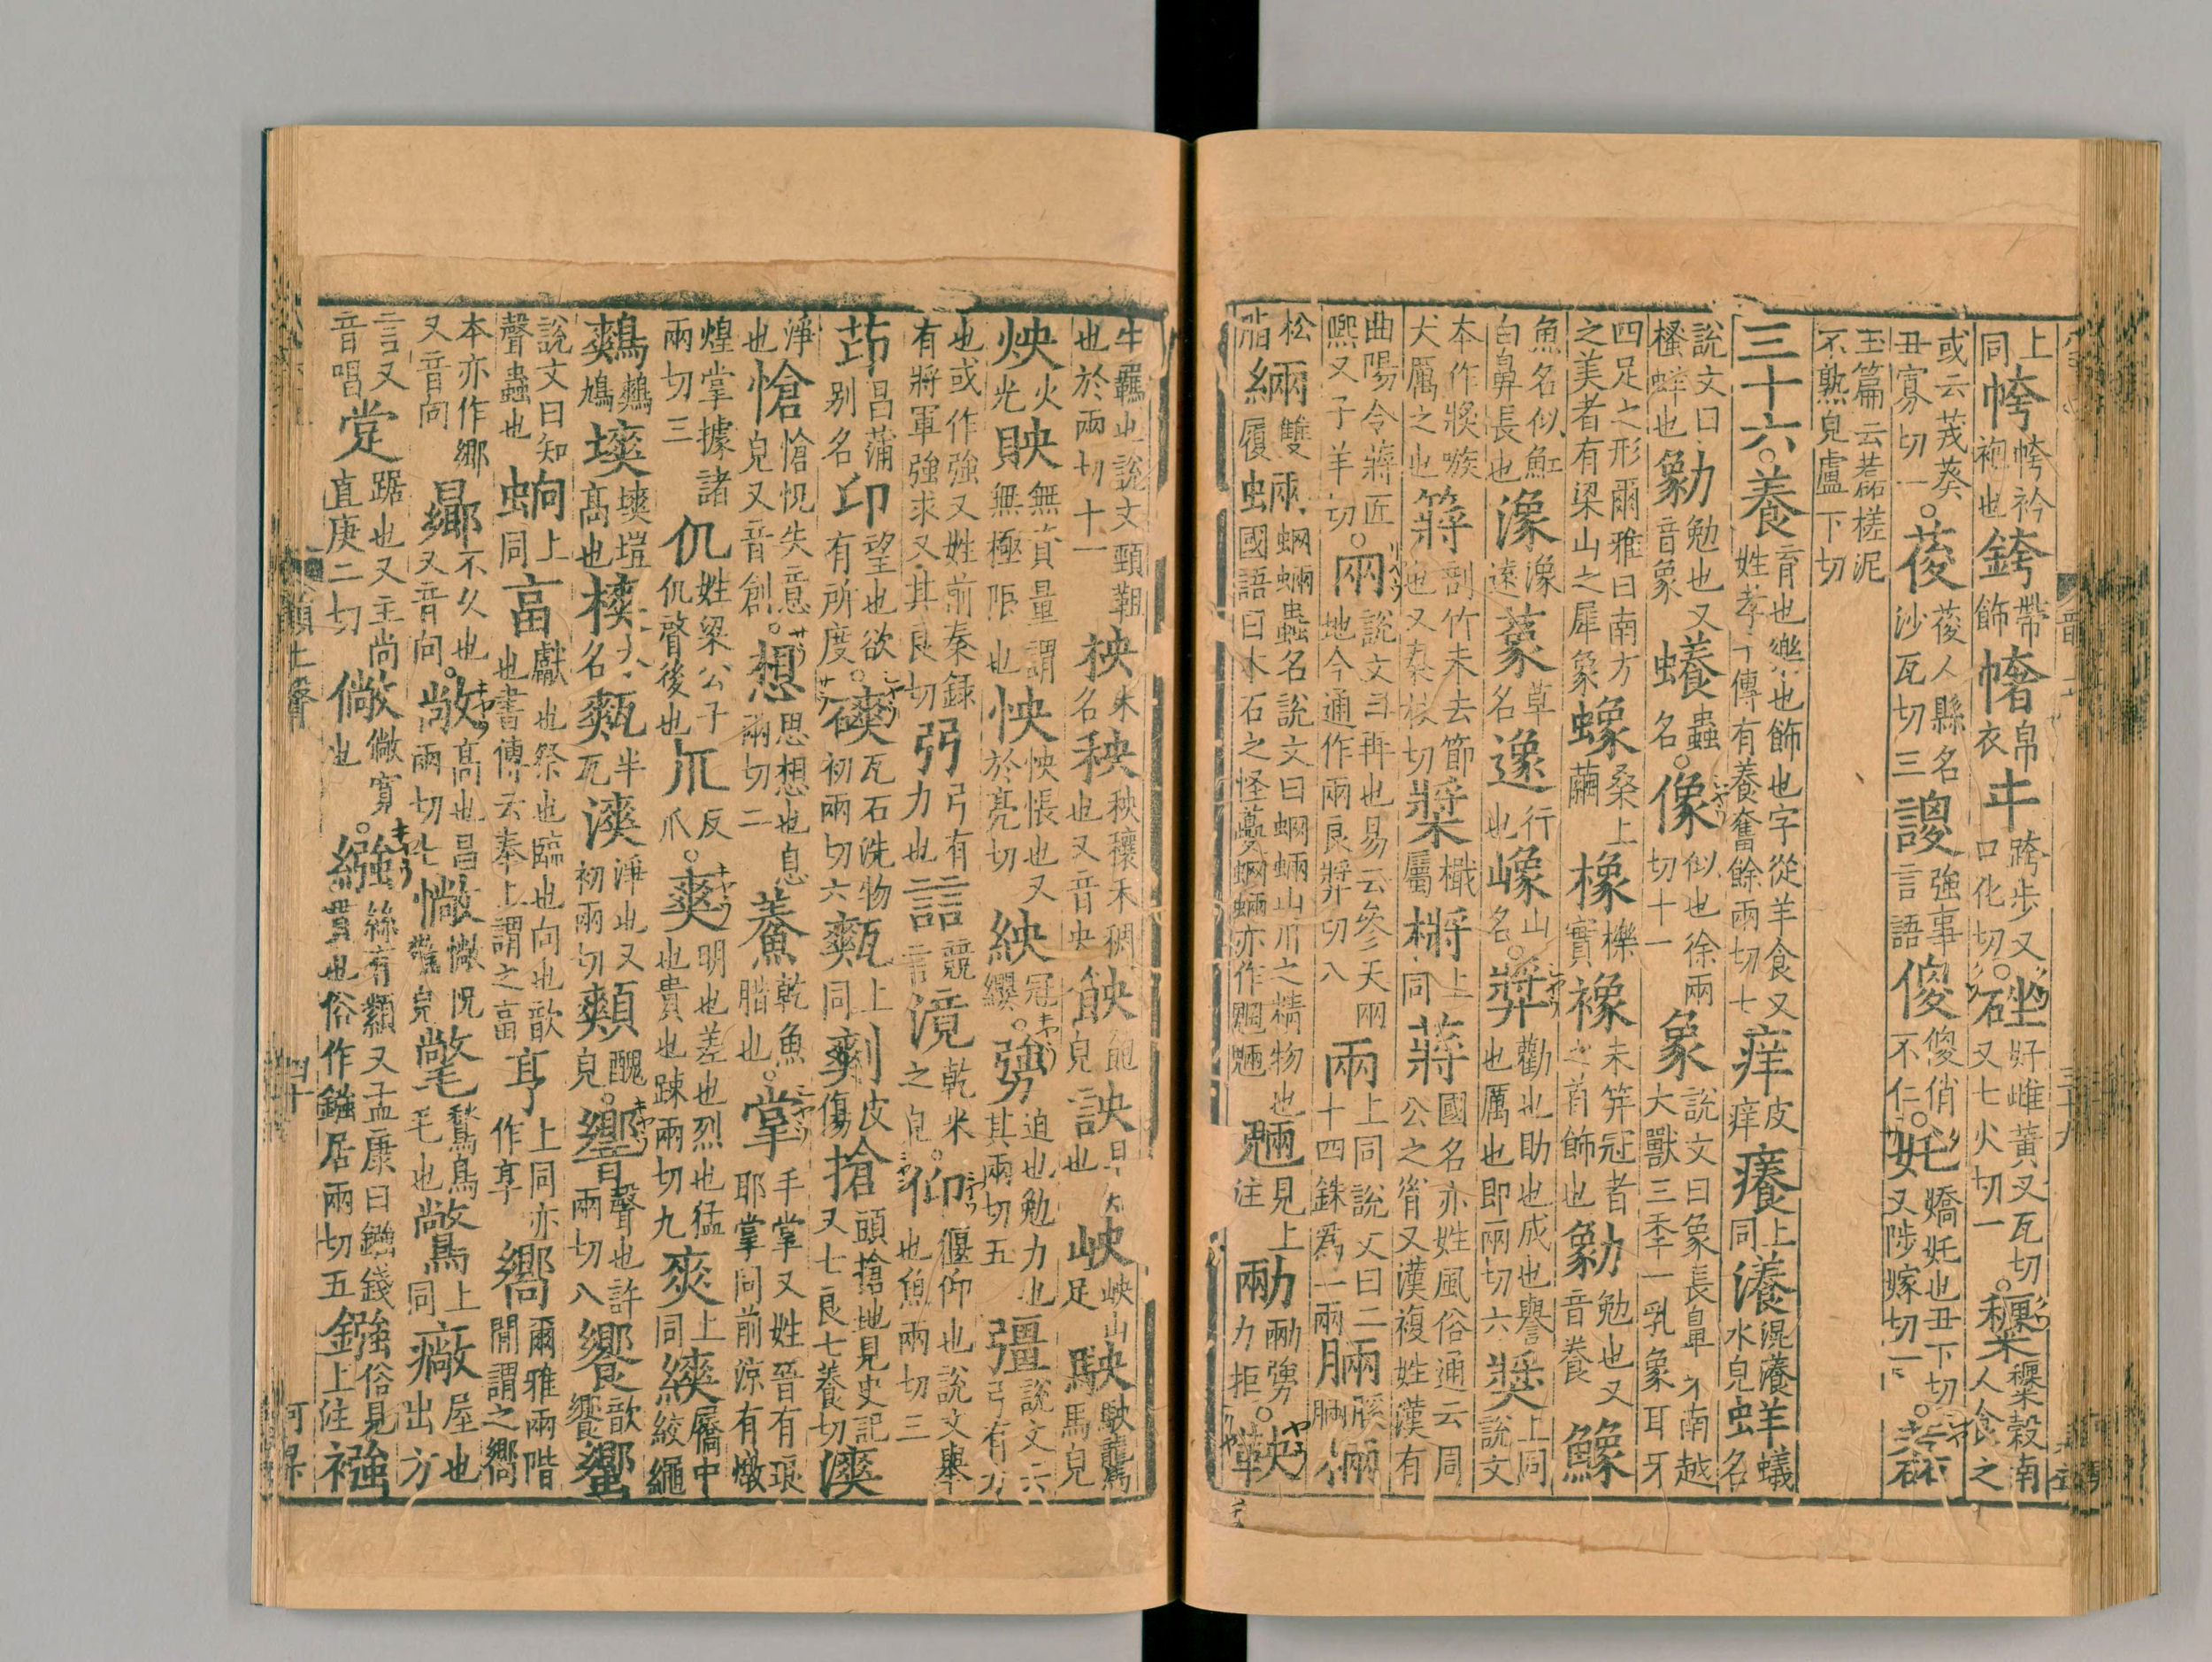 上同㡁㡁衿袍也銙帶飾㡇帛衣㐄跨步又口化切○硰好雌黃又瓦切又七火切一○穀南人食之
或云茂葵丑寡切一○葰葰人縣名沙瓦切三謏強事言語傻傻俏不仁○奼嬌奼也丑下切又陟嫁切一○𦿉
玉篇云𦿉槎泥不熟皃盧下切
三十六○養育也樂也飾也字從羊食又姓孝子傳有養奮餘兩切七痒皮痒癢上同瀁滉瀁水皃蛘蟻名
說文曰搔蛘也勨勉也又音象蟻蟲名○像似也徐兩切十一象說文曰象長鼻牙南越大獸三秊一乳象耳牙
四足之形爾雅曰南方之美者有梁山之犀象蟓桑上繭橡櫟實襐未笄冠者之首飾也勨勉也又音養鱌
魚名似魟白鼻長也潒潒遠蒙草名𨗨行也嶑山名○㢡勸也助也成也譽也厲也即兩切六獎上同說文
本作㢡嗾犬厲之也䉃剖竹未去節也又秦杖切槳檝屬㯍上同蔣國名亦姓風俗通云周公之胄又漢複姓漢有
曲陽令蔣匠熙又子羊切○㒳說文曰再也易云參天㒳地今通作兩良獎切八兩上同說文曰二十四銖爲一兩脼脼膎脯㒳
松脂緉雙履蜽蜽蝄蜽蟲名說文曰蝄蜽山川之精物也國語曰木石之怪夔蝄蜽亦作魍魎魎見上注勴勴勥力拒○鞅
牛羈也說文頸靼也於兩切十一柍木名秧秧穰禾稠也又音央䬬飽皃詇早知也岟岟山足駚駚䮾馬皃
炴火光䏮無貲量謂無極限也怏怏悵也又於亮切紻冠纓○勥迫也勉力也其兩切五彊說文云弓有力
也或作強又姓前秦錄有將軍強求又其良切弜弓有力也誩競言滰乾米之皃○仰偃仰也說文舉也魚兩切三
茚昌蒲別名卬望也欲有所度○磢瓦石洗物初兩切六㼽上同㔏皮傷搶頭搶地見史記又七良七養切漺
淨也愴愴怳失意皃又音創○想思想也息兩切二鯗乾魚腊也○掌手掌又姓晉有琅耶掌同前涼有燉
煌掌據諸兩切三仉姓梁公子仉䏿後也爪反爪○爽明也差也烈也猛也貴也踈兩切九爽上同䋽屩中絞繩
鷞鷞鳩塽塽塏高也樉木名㼽半瓦漺淨也又初兩切䫪醜皃○響聲也許兩切八饗歆饗蠁
說文曰知聲蟲也蚼上同亯獻也祭也臨也向也歆也書傳云奉上謂之亯亨上同亦作享嚮爾雅兩階閒謂之嚮
本亦作鄉又音向曏不久也又音向○敞高也昌兩切七惝惝怳驚皃氅鶖鳥毛也鷩上同廠屋也出方
言又音唱㲂踞也又主尚直庚二切倘倘寬也○繦絲有纇又孟康曰鏹錢貫也俗作鏹居兩切五鏹俗見上注襁